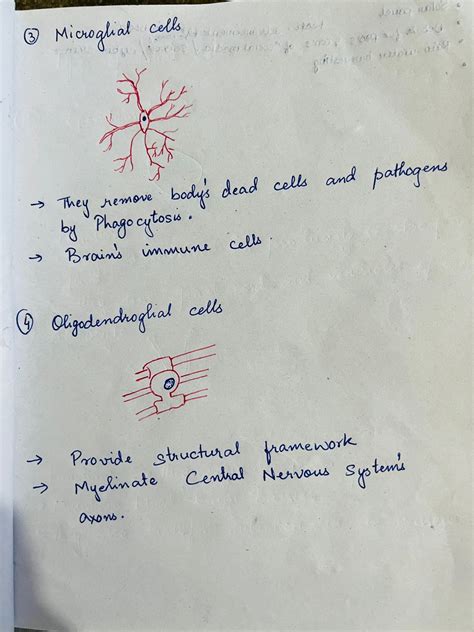 ③ Microglial cells
→ They remove body's dead cells and pathogens
by Phagocytosis.
→ Brain's immune cells.
④ Oligodendroglial cells
→ Provide structural framework
→ Myelinate Central Nervous System's
axons.